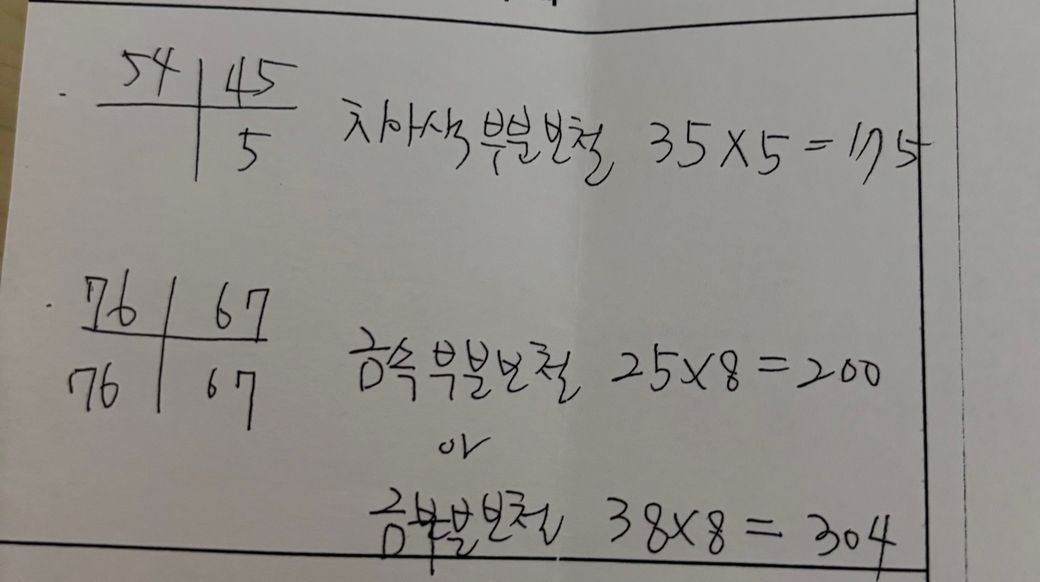 54 | 45
5
치아색 부분보철 35×5=175
76 | 67
76 | 67
금속부분보철 25×8=200
or
금부분보철 38×8=304